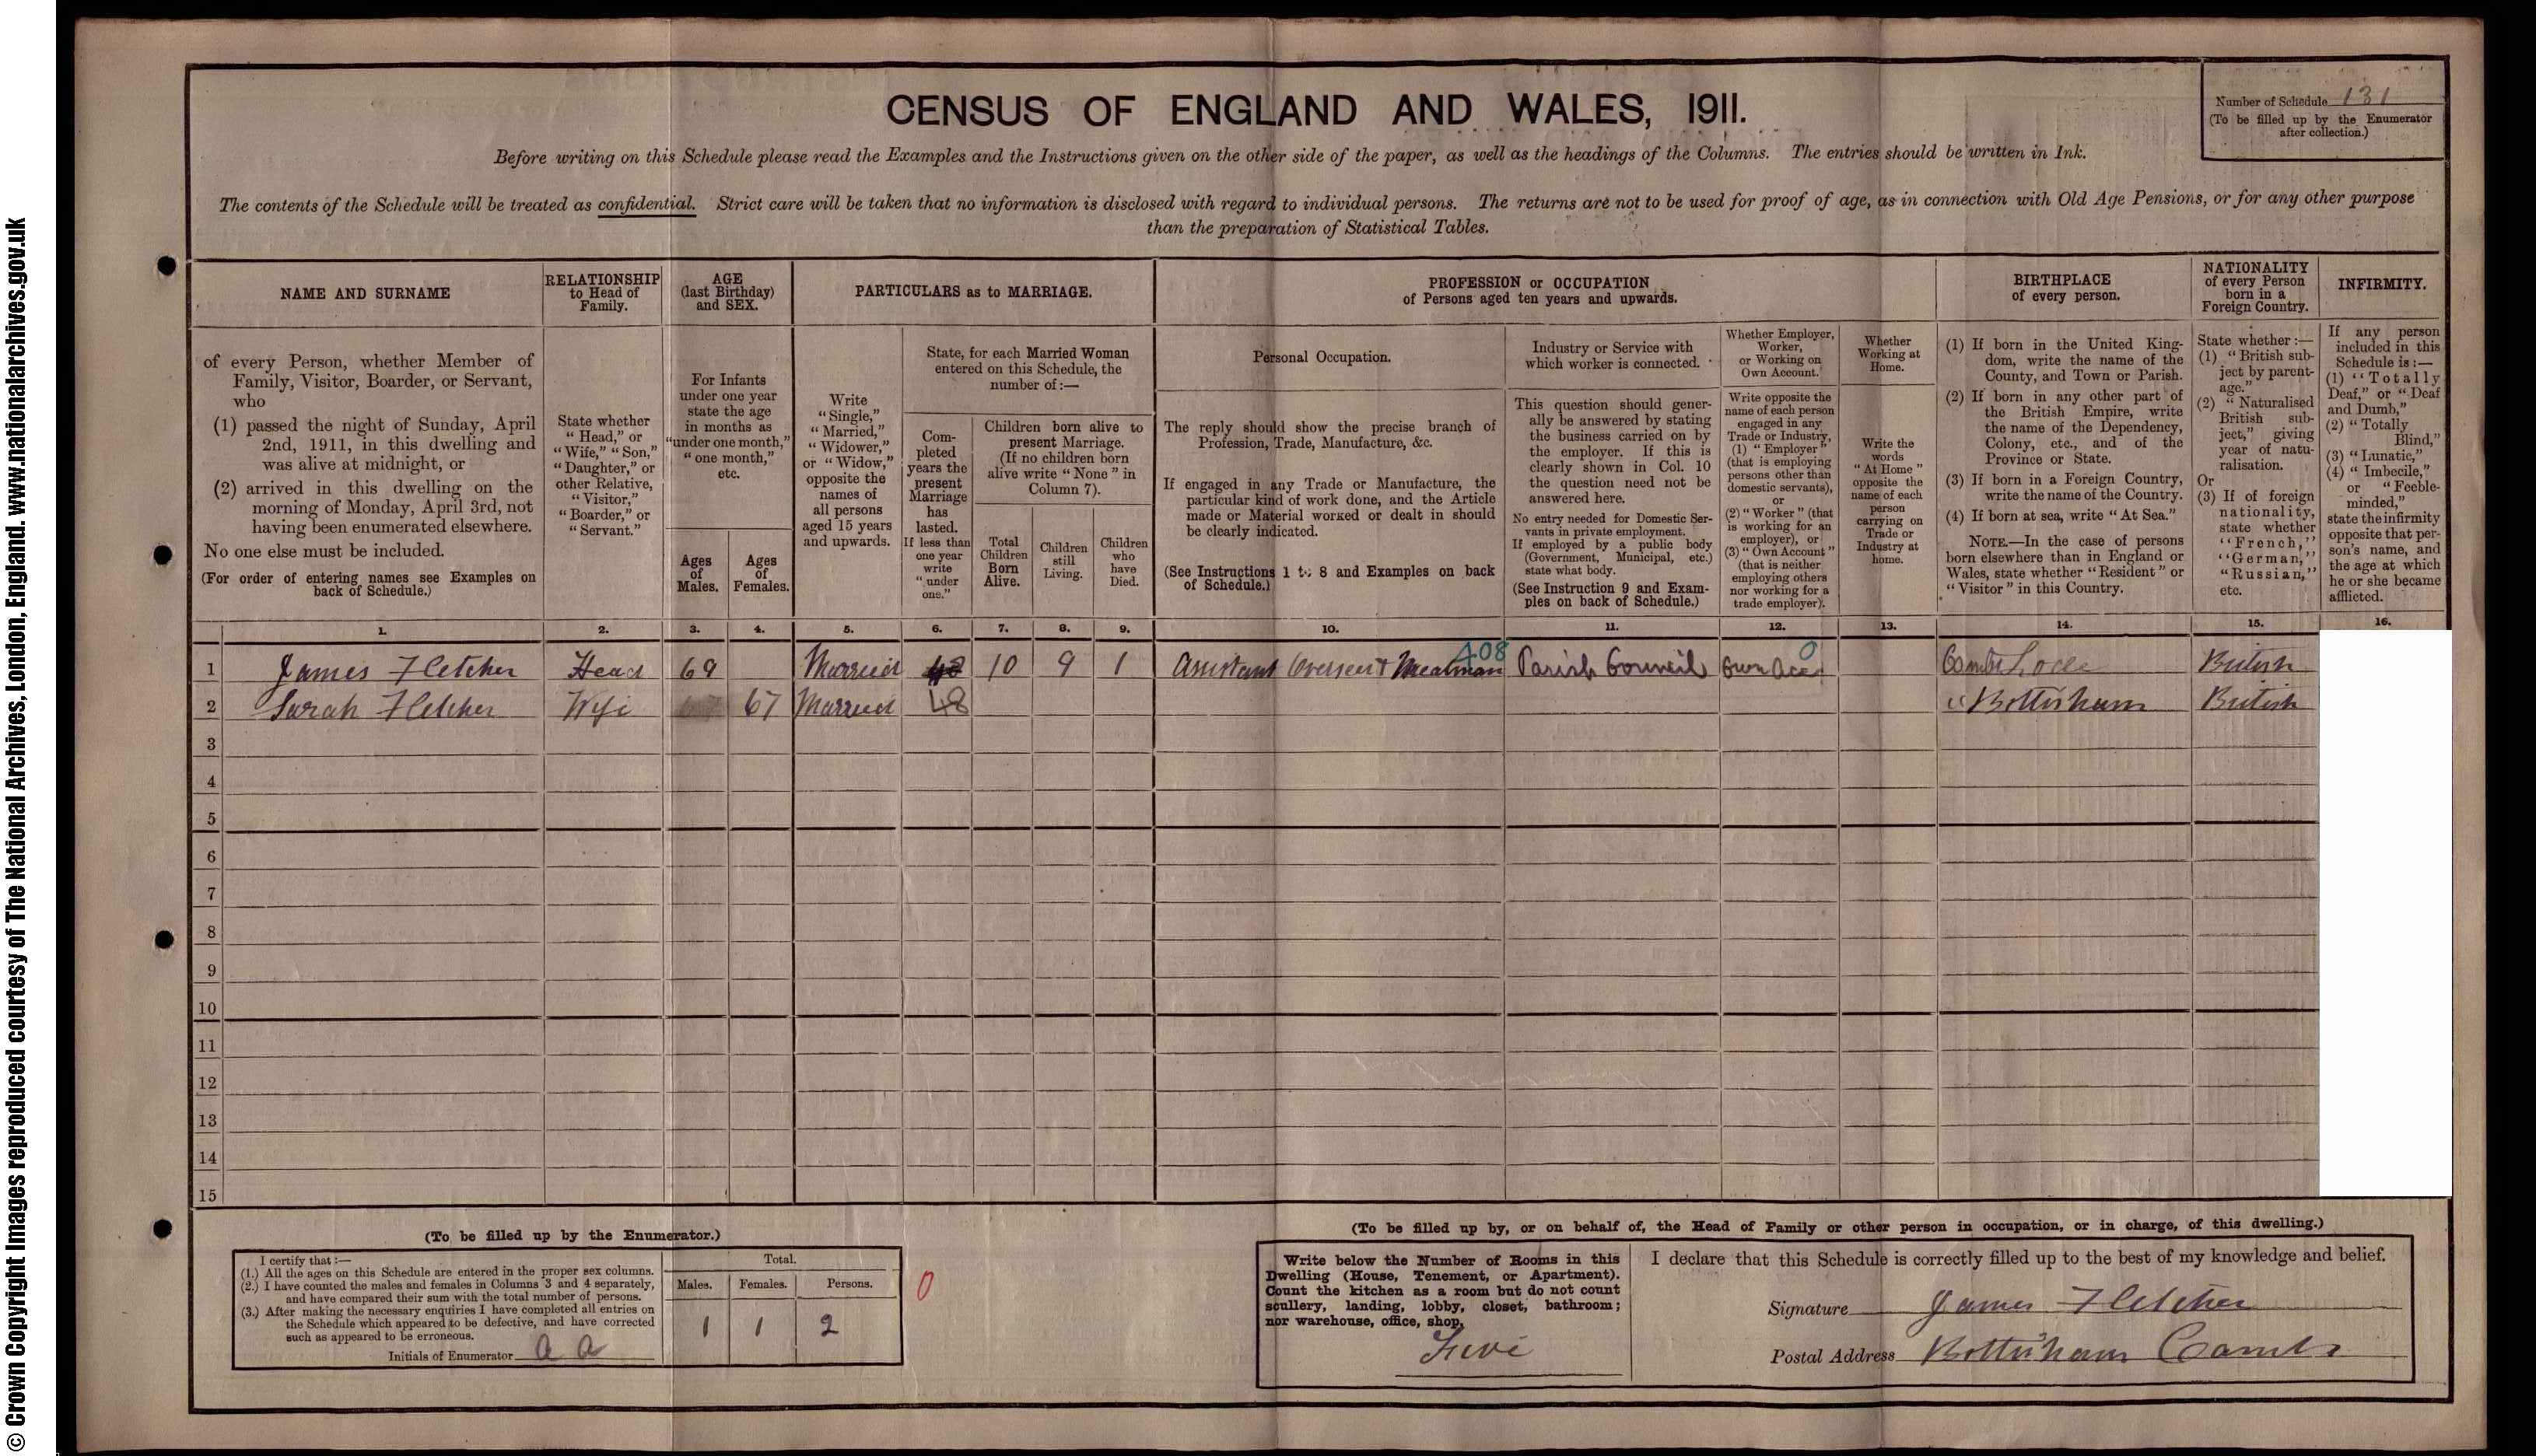 © Crown Copyright Images reproduced courtesy of The National Archives, London, England. www.nationalarchives.gov.uk
CENSUS OF ENGLAND AND WALES, 1911.
Number of Schedule 131
(To be filled up by the Enumerator
after collection.)
Before writing on this Schedule please read the Examples and the Instructions given on the other side of the paper, as well as the headings of the Columns. The entries should be written in Ink.
The contents of the Schedule will be treated as confidential. Strict care will be taken that no information is disclosed with regard to individual persons. The returns are not to be used for proof of age, as in connection with Old Age Pensions, or for any other purpose
than the preparation of Statistical Tables.
NAME AND SURNAME
of every Person, whether Member of
Family, Visitor, Boarder, or Servant,
who
(1) passed the night of Sunday, April
2nd, 1911, in this dwelling and
was alive at midnight, or
(2) arrived in this dwelling on the
morning of Monday, April 3rd, not
having been enumerated elsewhere.
No one else must be included.
(For order of entering names see Examples on
back of Schedule.)
RELATIONSHIP
to Head of
Family.
State whether
"Head," or
"Wife," "Son,"
"Daughter," or
other Relative,
"Visitor,"
"Boarder," or
"Servant."
AGE
(last Birthday)
and SEX.
For Infants
under one year
state the age
in months as
"under one month,"
"one month,"
etc.
Ages
of
Males.
Ages
of
Females.
PARTICULARS as to MARRIAGE.
Write
"Single,"
"Married,"
"Widower,"
or "Widow,"
opposite the
names of
all persons
aged 15 years
and upwards.
State, for each Married Woman
entered on this Schedule, the
number of:—
Com-
pleted
years the
present
Marriage
has
lasted.
If less than
one year
write
"under
one."
Children born alive to
present Marriage.
(If no children born
alive write "None" in
Column 7).
Total
Children
Born
Alive.
Children
still
Living.
Children
who
have
Died.
PROFESSION or OCCUPATION
of Persons aged ten years and upwards.
Personal Occupation.
The reply should show the precise branch of
Profession, Trade, Manufacture, &c.
If engaged in any Trade or Manufacture, the
particular kind of work done, and the Article
made or Material worked or dealt in should
be clearly indicated.
(See Instructions 1 to 8 and Examples on back
of Schedule.)
Industry or Service with
which worker is connected.
This question should gener-
ally be answered by stating
the business carried on by
the employer. If this is
clearly shown in Col. 10
the question need not be
answered here.
No entry needed for Domestic Ser-
vants in private employment.
If employed by a public body
(Government, Municipal, etc.)
state what body.
(See Instruction 9 and Exam-
ples on back of Schedule.)
Whether Employer,
Worker,
or Working on
Own Account.
Write opposite the
name of each person
engaged in any
Trade or Industry,
(1) "Employer"
(that is employing
persons other than
domestic servants),
or
(2) "Worker" (that
is working for an
employer), or
(3) "Own Account"
(that is neither
employing others
nor working for a
trade employer).
Whether
Working at
Home.
Write the
words
"At Home"
opposite the
name of each
person
carrying on
Trade or
Industry at
home.
BIRTHPLACE
of every person.
(1) If born in the United King-
dom, write the name of the
County, and Town or Parish.
(2) If born in any other part of
the British Empire, write
the name of the Dependency,
Colony, etc., and of the
Province or State.
(3) If born in a Foreign Country,
write the name of the Country.
(4) If born at sea, write "At Sea."
NOTE.—In the case of persons
born elsewhere than in England or
Wales, state whether "Resident" or
"Visitor" in this Country.
NATIONALITY
of every Person
born in a
Foreign Country.
State whether:—
(1) "British sub-
ject by parent-
age."
(2) "Naturalised
British sub-
ject," giving
year of natu-
ralisation.
Or
(3) If of foreign
nationality,
state whether
"French,"
"German,"
"Russian,"
etc.
INFIRMITY.
If any person
included in this
Schedule is:—
(1) "Totally
Deaf," or "Deaf
and Dumb,"
(2) "Totally
Blind,"
(3) "Lunatic,"
(4) "Imbecile,"
or "Feeble-
minded,"
state the infirmity
opposite that per-
son's name, and
the age at which
he or she became
afflicted.
1. 2. 3. 4. 5. 6. 7. 8. 9. 10. 11. 12. 13. 14. 15. 16.
408 0
1 James Fletcher Head 69 Married 48 10 9 1 Assistant Overseer & Mealman Parish Council Own Acct Cambs Lode British
2 Sarah Fletcher Wife 67 Married 48 " Bottisham British
3
4
5
6
7
8
9
10
11
12
13
14
15
(To be filled up by the Enumerator.)
I certify that:—
(1.) All the ages on this Schedule are entered in the proper sex columns.
(2.) I have counted the males and females in Columns 3 and 4 separately,
and have compared their sum with the total number of persons.
(3.) After making the necessary enquiries I have completed all entries on
the Schedule which appeared to be defective, and have corrected
such as appeared to be erroneous.
Initials of Enumerator A A
Total.
Males. Females. Persons.
1 1 2
0
(To be filled up by, or on behalf of, the Head of Family or other person in occupation, or in charge, of this dwelling.)
Write below the Number of Rooms in this
Dwelling (House, Tenement, or Apartment).
Count the kitchen as a room but do not count
scullery, landing, lobby, closet, bathroom;
nor warehouse, office, shop.
Five
I declare that this Schedule is correctly filled up to the best of my knowledge and belief.
Signature James Fletcher
Postal Address Bottisham Cambs